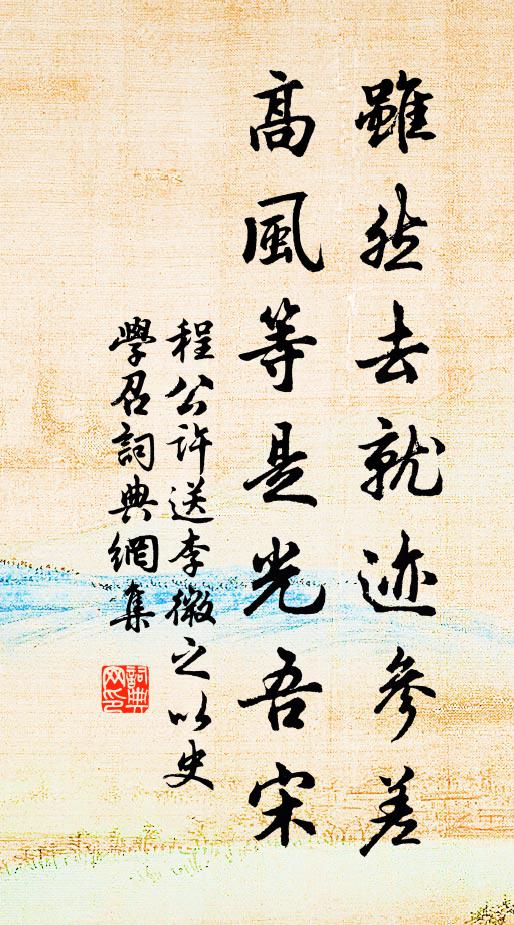 雖然去就迹參差
高風等是光吾宋
程公許送李微之以史
學召詞典網集
詞典
网印